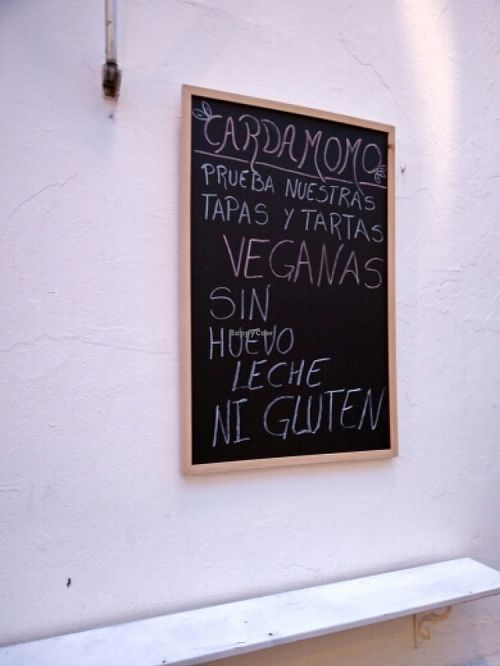 CARDAMOMO
PRUEBA NUESTRAS
TAPAS Y TARTAS
VEGANAS
SIN
HUEVO
HappyCow
LECHE
NI GLUTEN